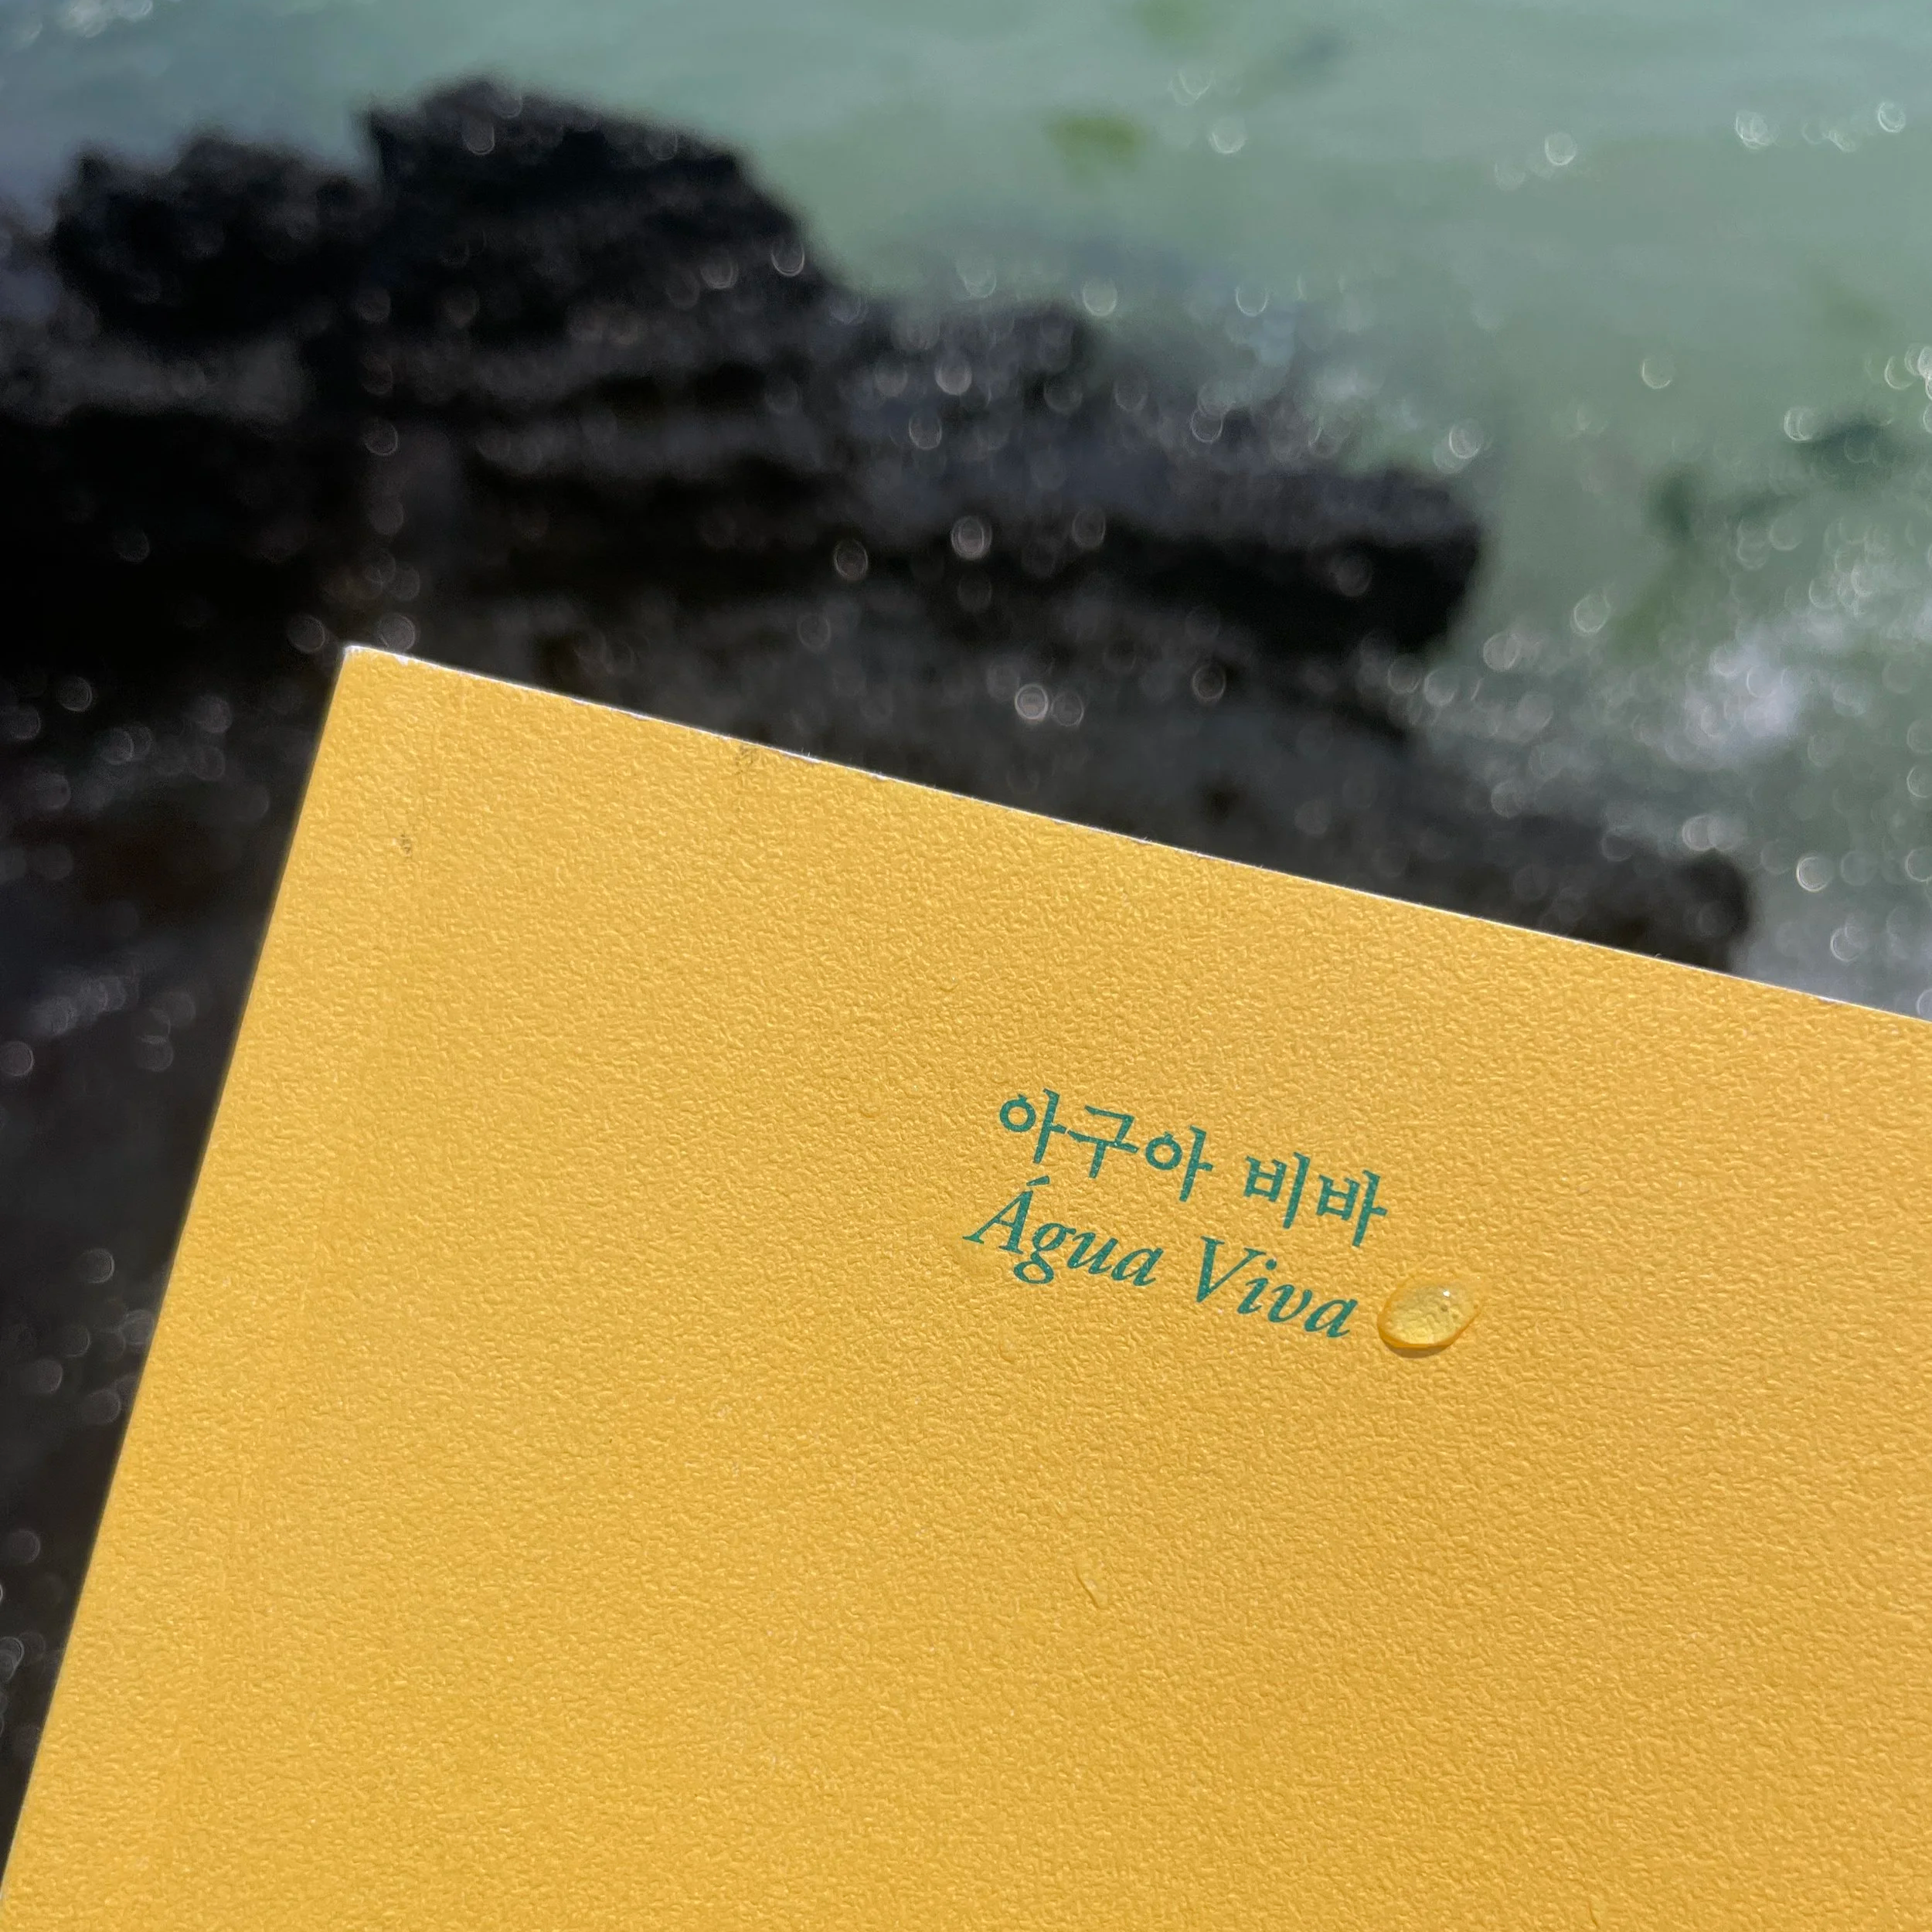 아구아 비바
Água Viva